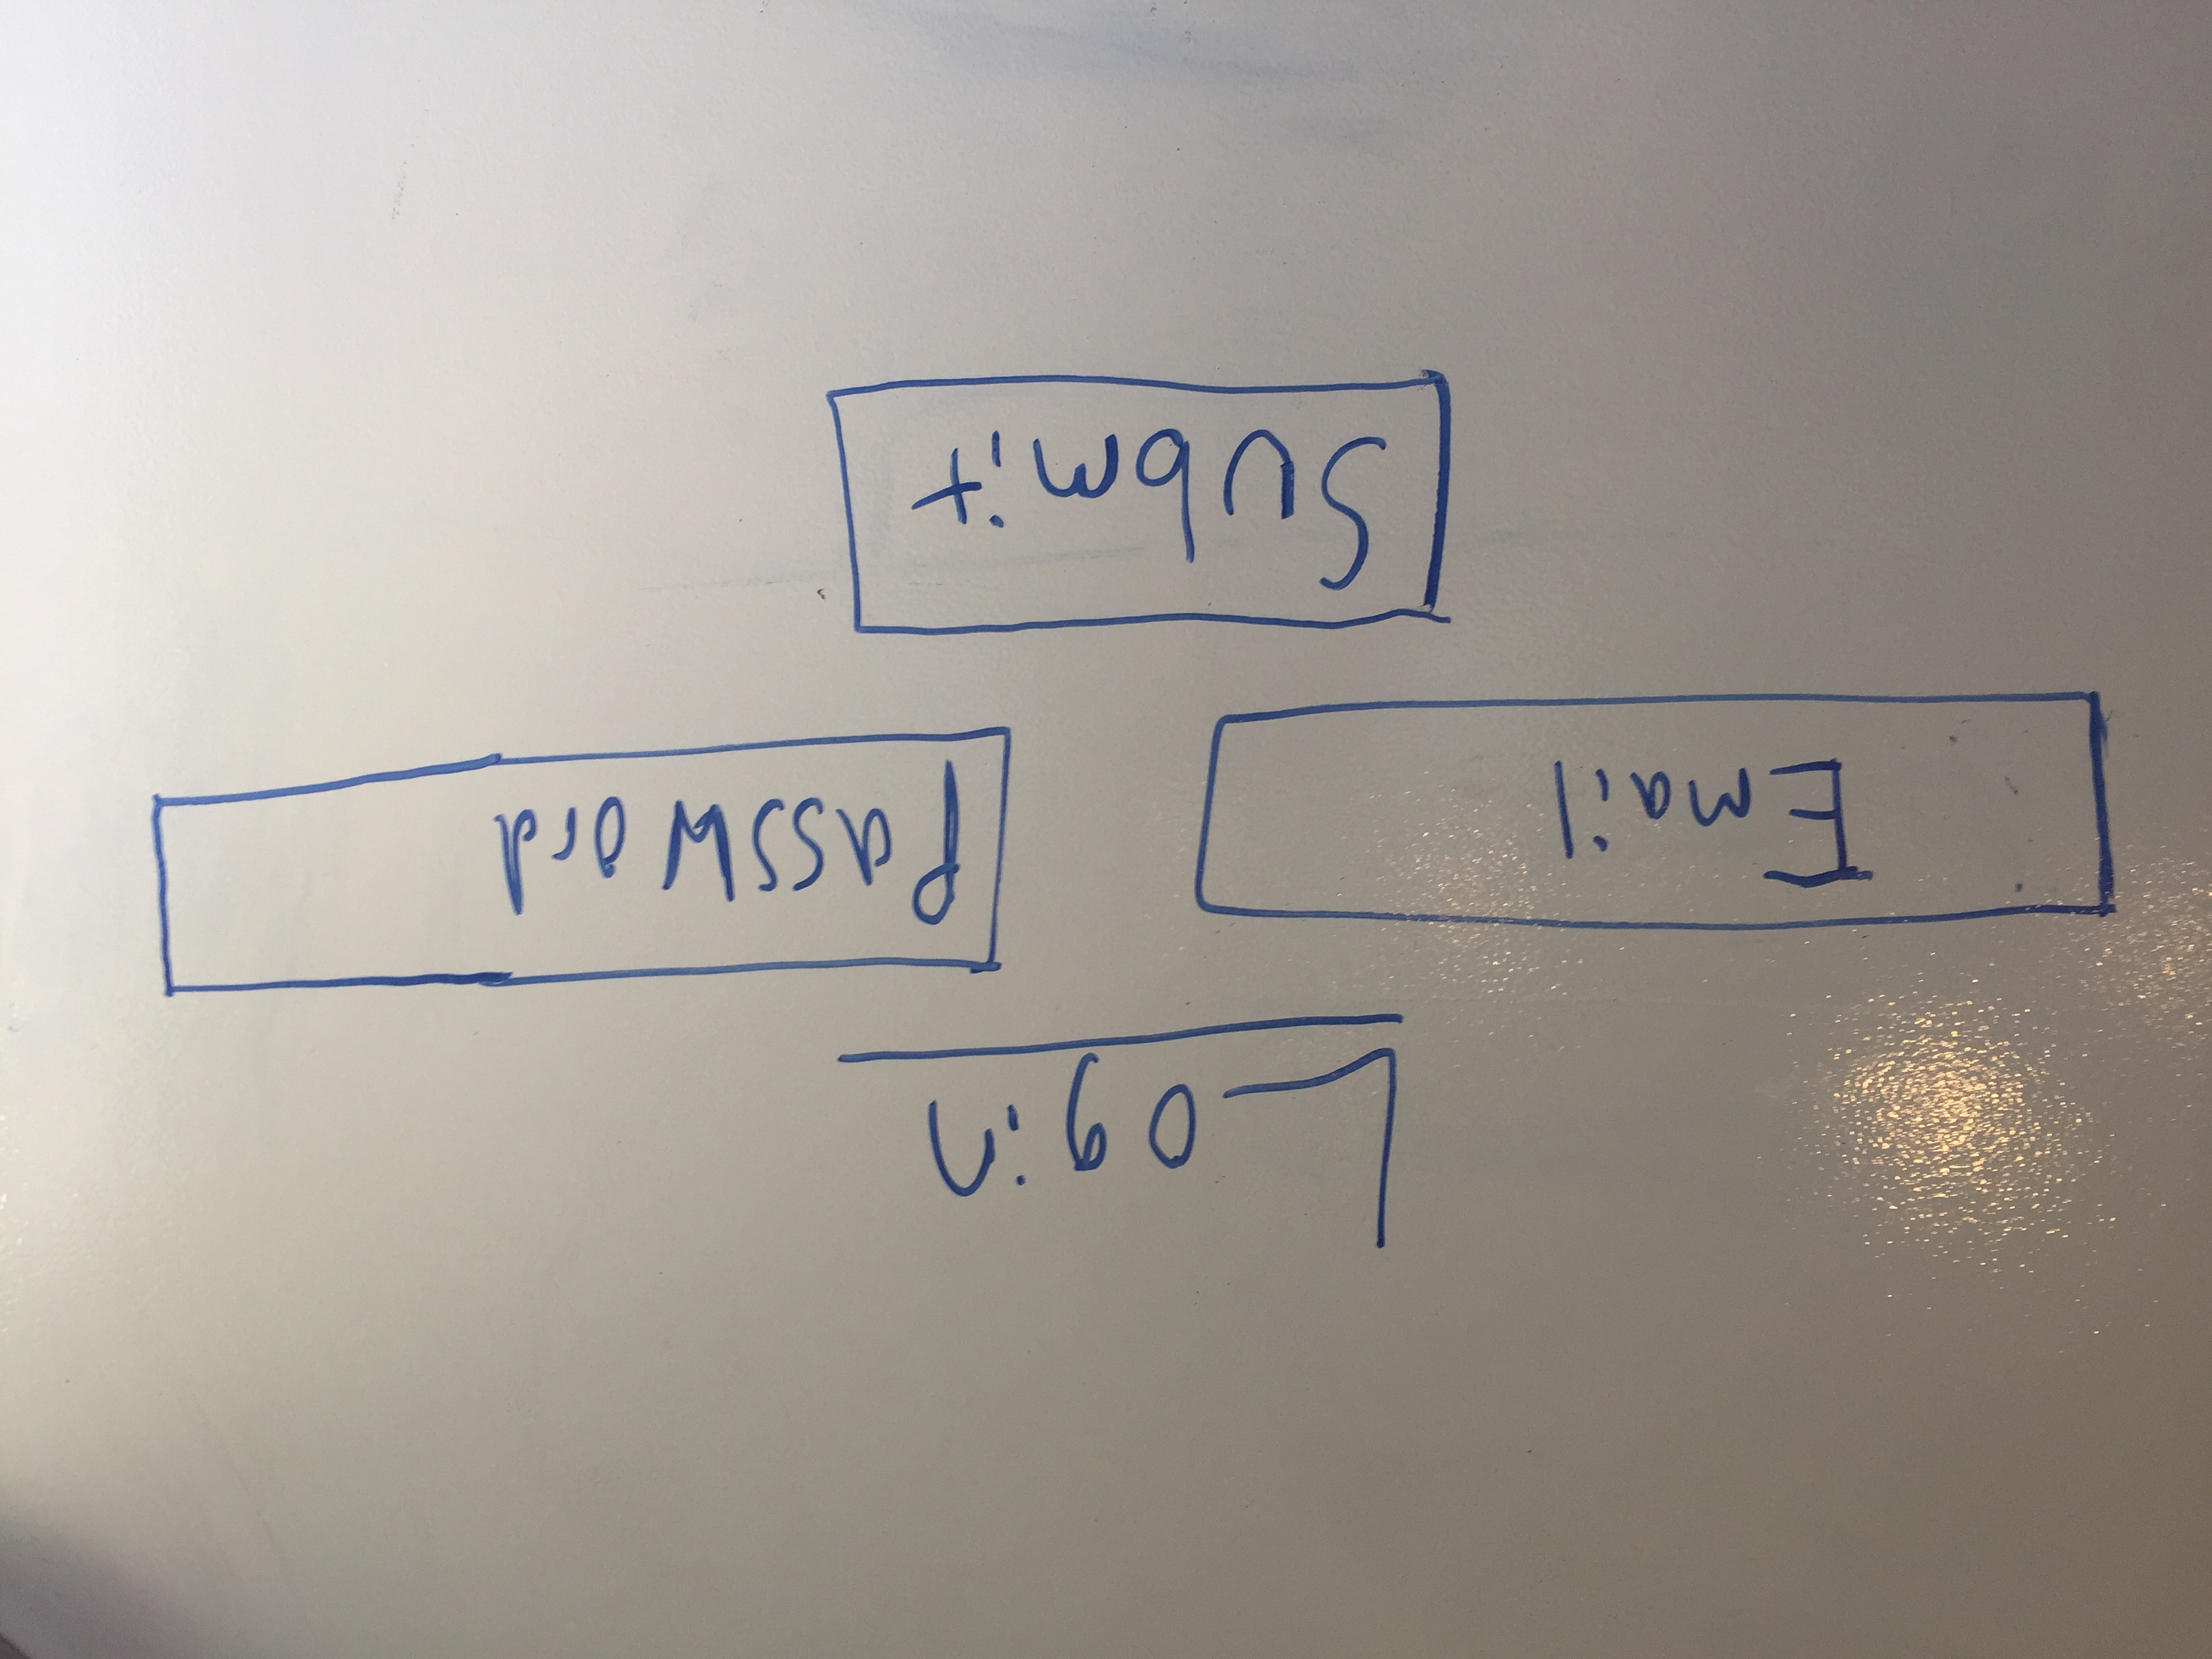 Login
Email
Password
Submit